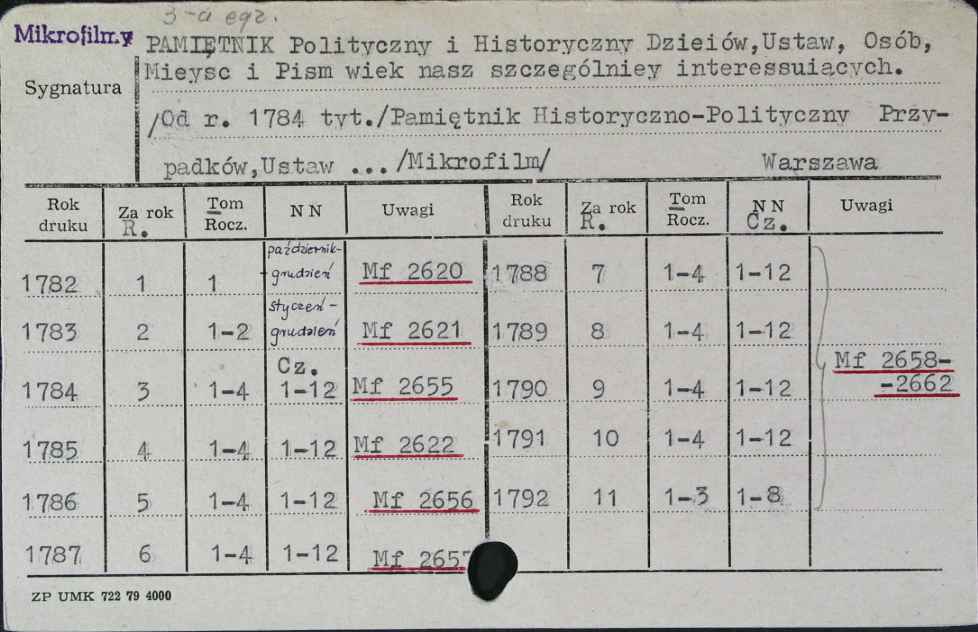 3-a egz.
Mikrofilmy
PAMIĘTNIK Polityczny i Historyczny Dzieiów,Ustaw, Osób,
Mieysc i Pism wiek nasz szczególniey interessuiących.
Sygnatura
/Od r. 1784 tyt./Pamiętnik Historyczno-Polityczny Przy-
padków,Ustaw .../Mikrofilm/ Warszawa
Rok druku Za rok R. Tom Rocz. NN Uwagi Rok druku Za rok R. Tom Rocz. NN Cz. Uwagi
1782 1 1 październik-grudzień Mf 2620 1788 7 1-4 1-12
1783 2 1-2 styczeń-grudzień Mf 2621 1789 8 1-4 1-12
Mf 2658-
-2662
1784 3 1-4 Cz. 1-12 Mf 2655 1790 9 1-4 1-12
1785 4 1-4 1-12 Mf 2622 1791 10 1-4 1-12
1786 5 1-4 1-12 Mf 2656 1792 11 1-3 1-8
1787 6 1-4 1-12 Mf 2657
ZP UMK 722 79 4000